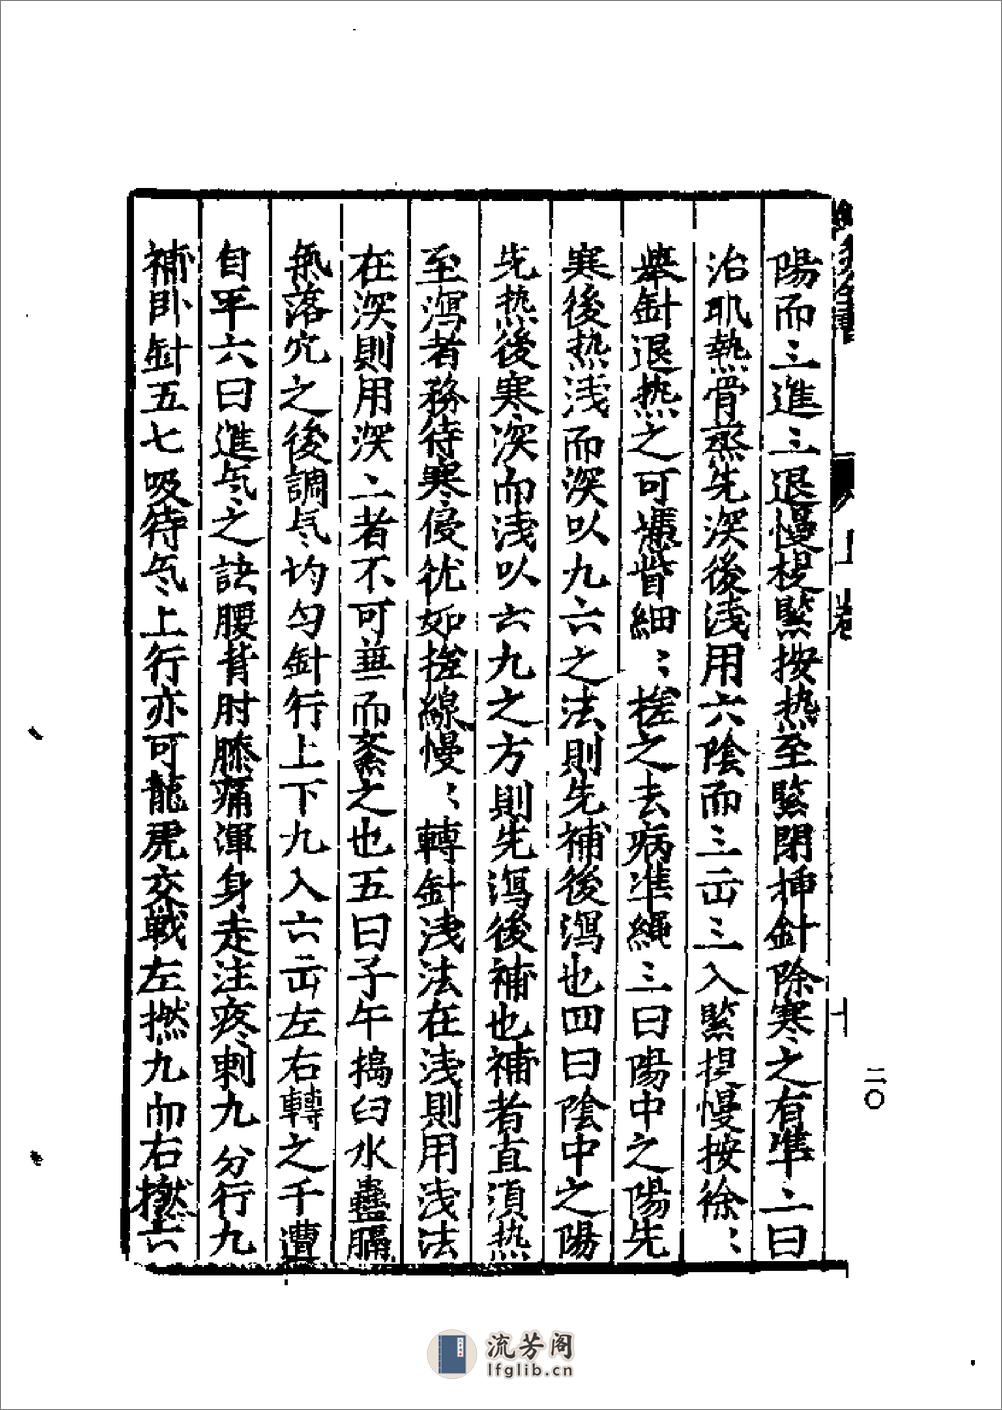 陽而三進三退慢提緊按热至緊閉插針除寒之有準二曰
治肌熱骨蒸先深後浅用六陰而三出三入緊提慢按徐〻
舉針退热之可憑皆細〻搓之去病準繩三曰陽中之陽先
寒後热浅而深以九六之法則先補後瀉也四曰陰中之陽
先热後寒深而浅以六九之方則先瀉後補也補者直須热
至瀉者務待寒侵犹如搓線慢〻轉針浅法在浅則用浅法
在深則用深二者不可兼而紊之也五曰子午搗臼水蠱膈
氣落穴之後調氣均匀針行上下九入六出左右轉之千遭
自平六曰進气之訣腰背肘膝痛渾身走注疼刺九分行九
補卧針五七吸待气上行亦可龍虎交戰左撚九而右撚六
上卷
十
二〇
流芳阁
lfglib.cn